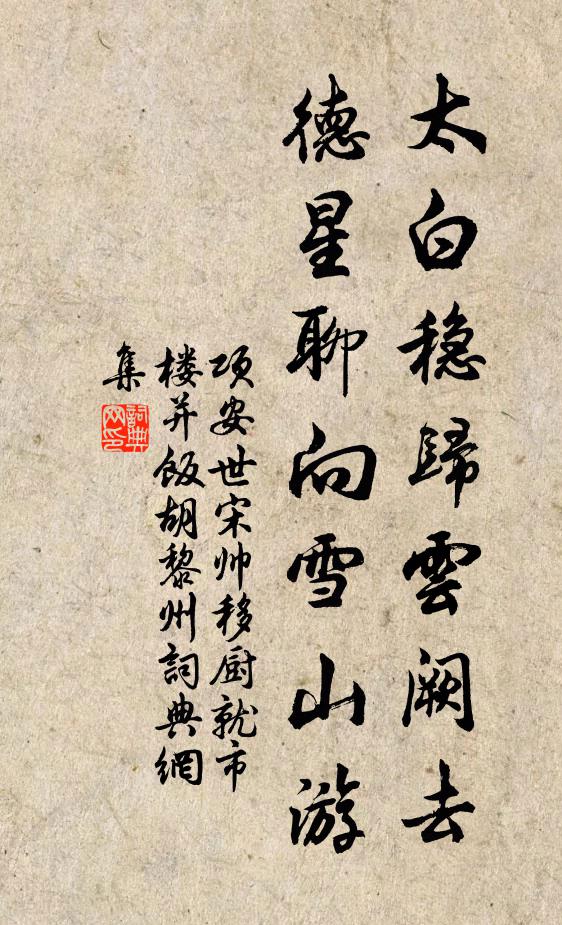 太白穏歸雲阙去
德星聊向雪山游
项安世宋帅移厨就市
楼并饭胡黎州詞典網
集
詞典
网印